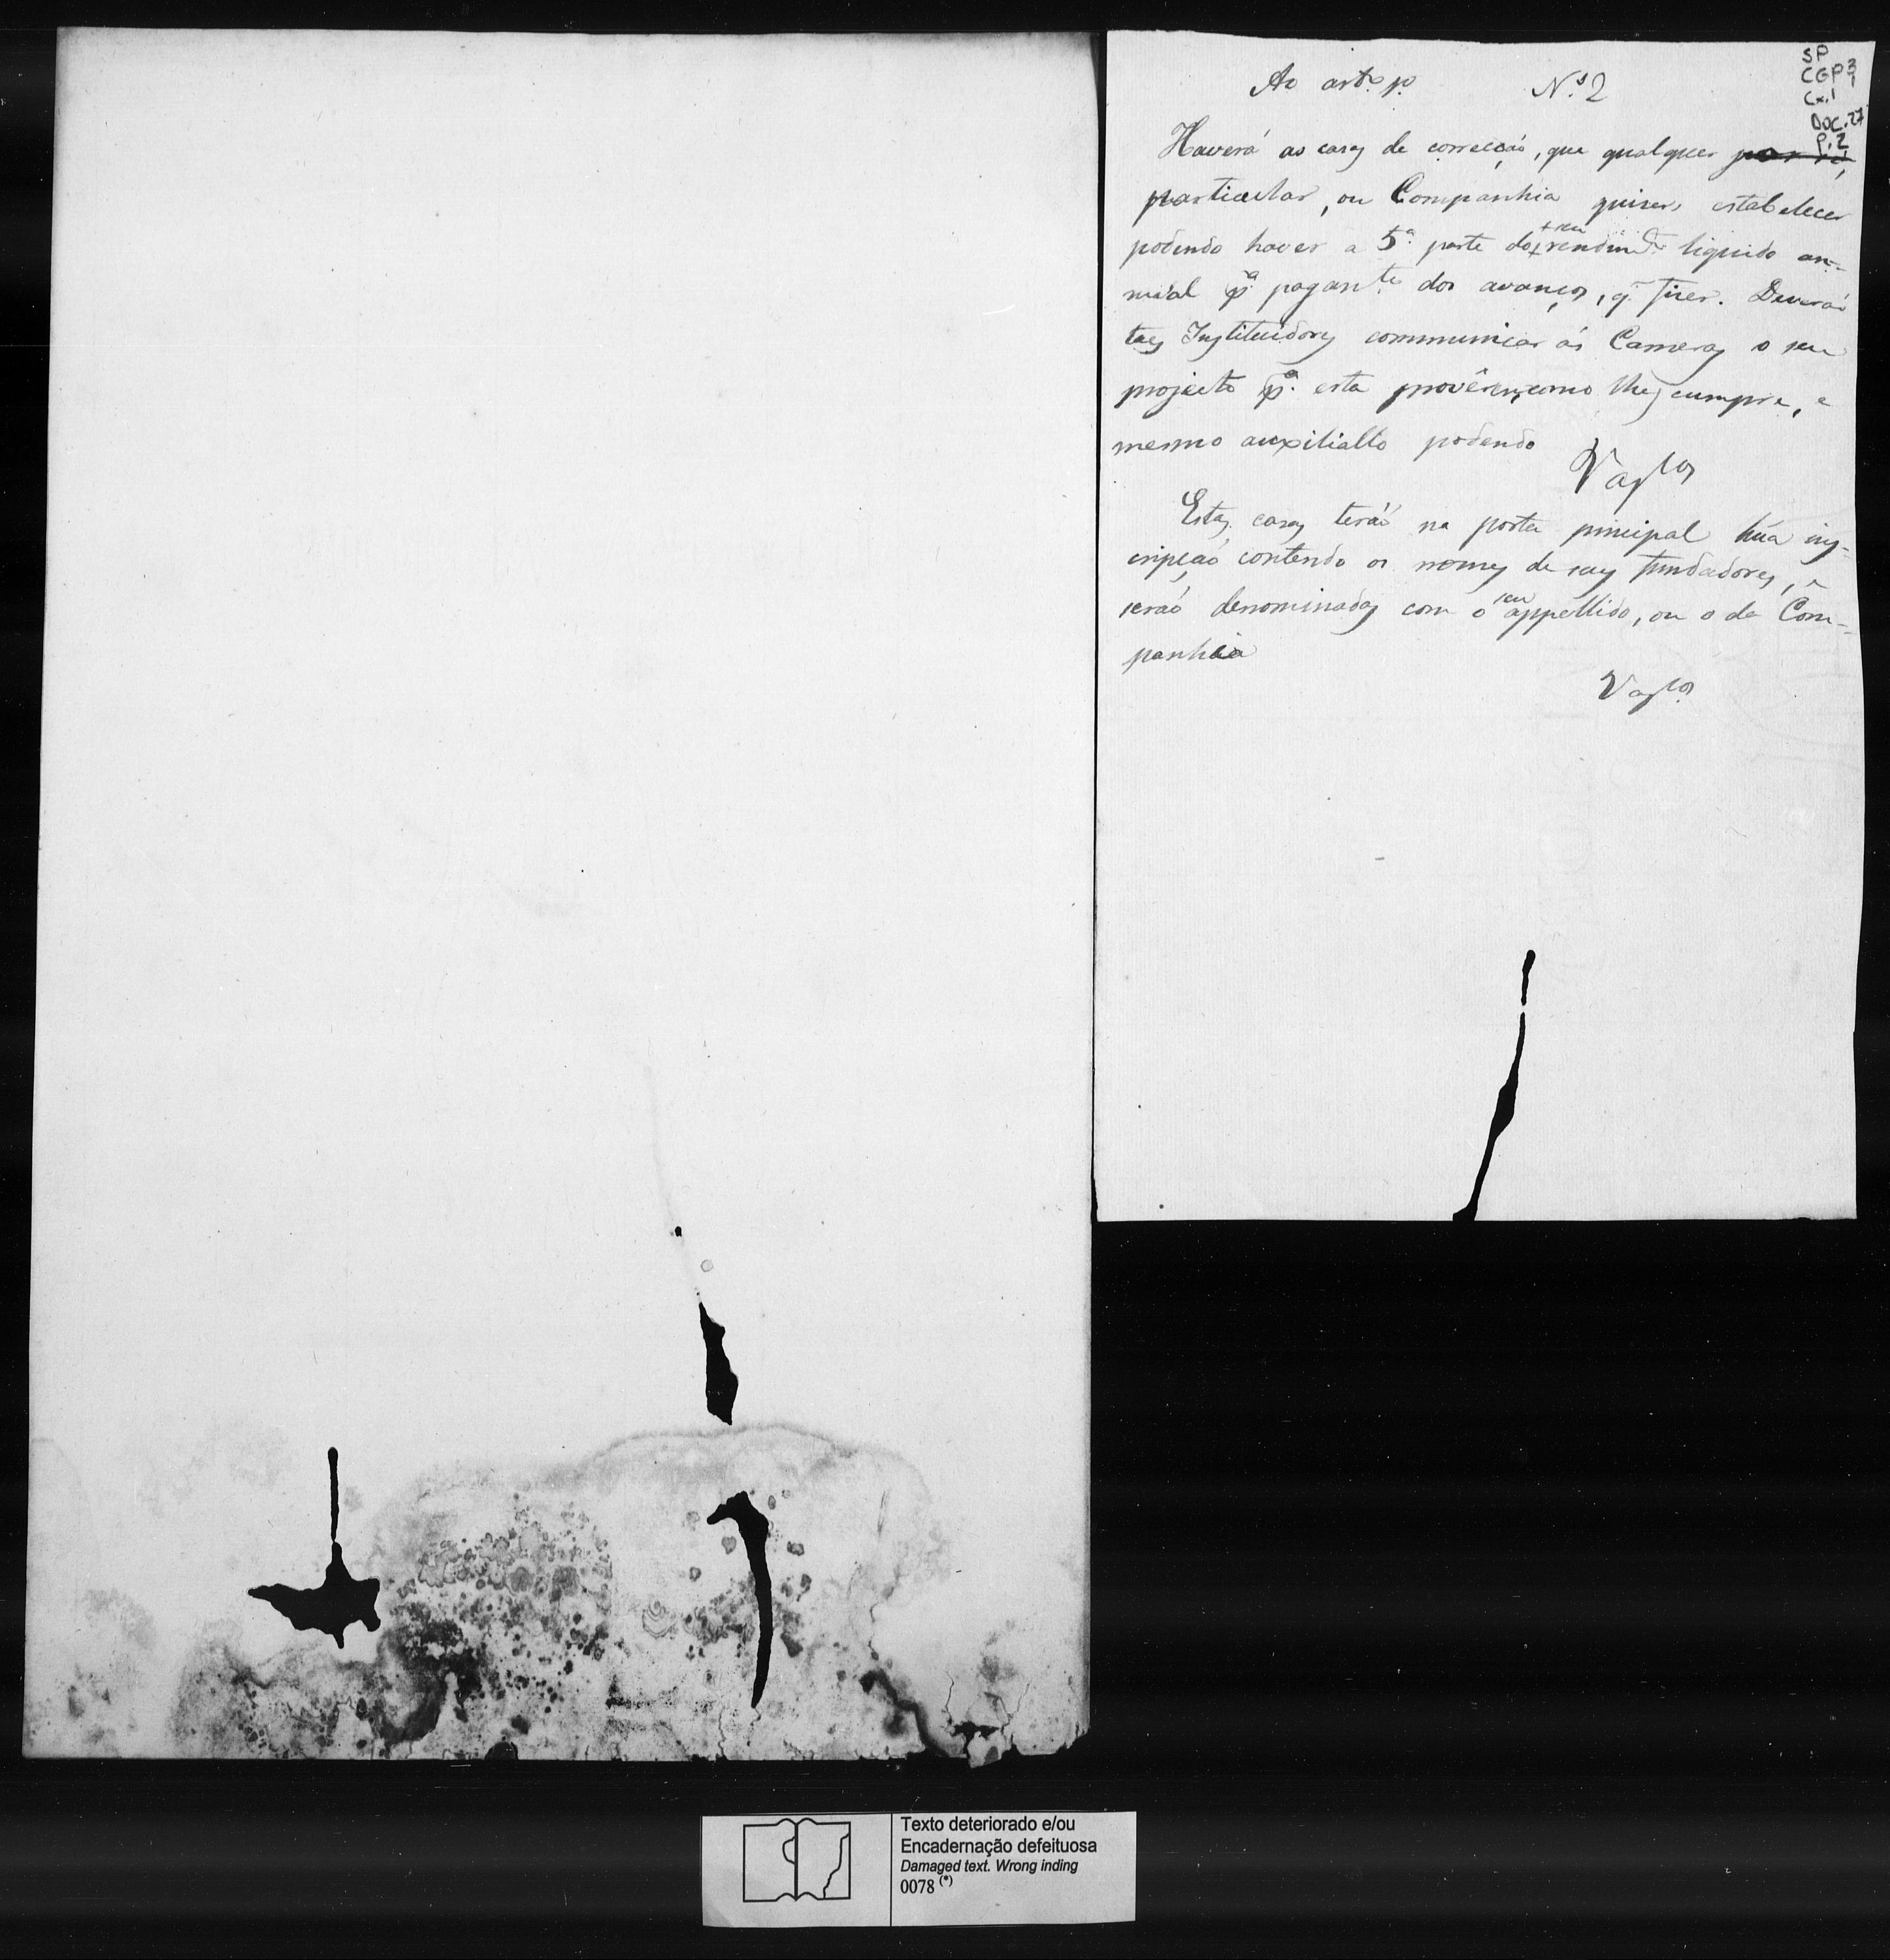 SP
CGP 3
Cx. 1 1
DOC. 27
P. 2
Ao artº pº Nº 2
Haverá as casas de correcçaõ, que qualquer
particular, ou Companhia quiser estabelecer
podendo haver a 5ª parte do seu rendimto liquido an-
nual pª pagante dos avanços, q̃ fizer. Deveraõ
taes Instituidores communicar ás Cameras o seu
projecto pª esta provêrem, como lhes cumpre, e
mesmo auxiliallo podendo
Vasclos
Estas casas teraõ na porta principal hũa ins-
cripçaõ contendo os nomes de seus fundadores, e
seraõ denominadas com o seu appellido, ou o da Com-
panhia
Vasclos
Texto deteriorado e/ou
Encadernação defeituosa
Damaged text. Wrong inding
0078 (*)